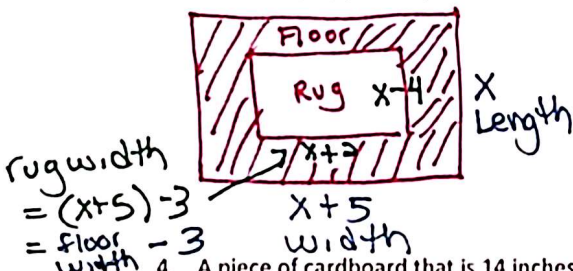 Floor
Rug x-4
x
Length
x+2
rug width
= (x+5)-3
= floor width - 3
x+5
width
4. A piece of cardboard that is 14 inches